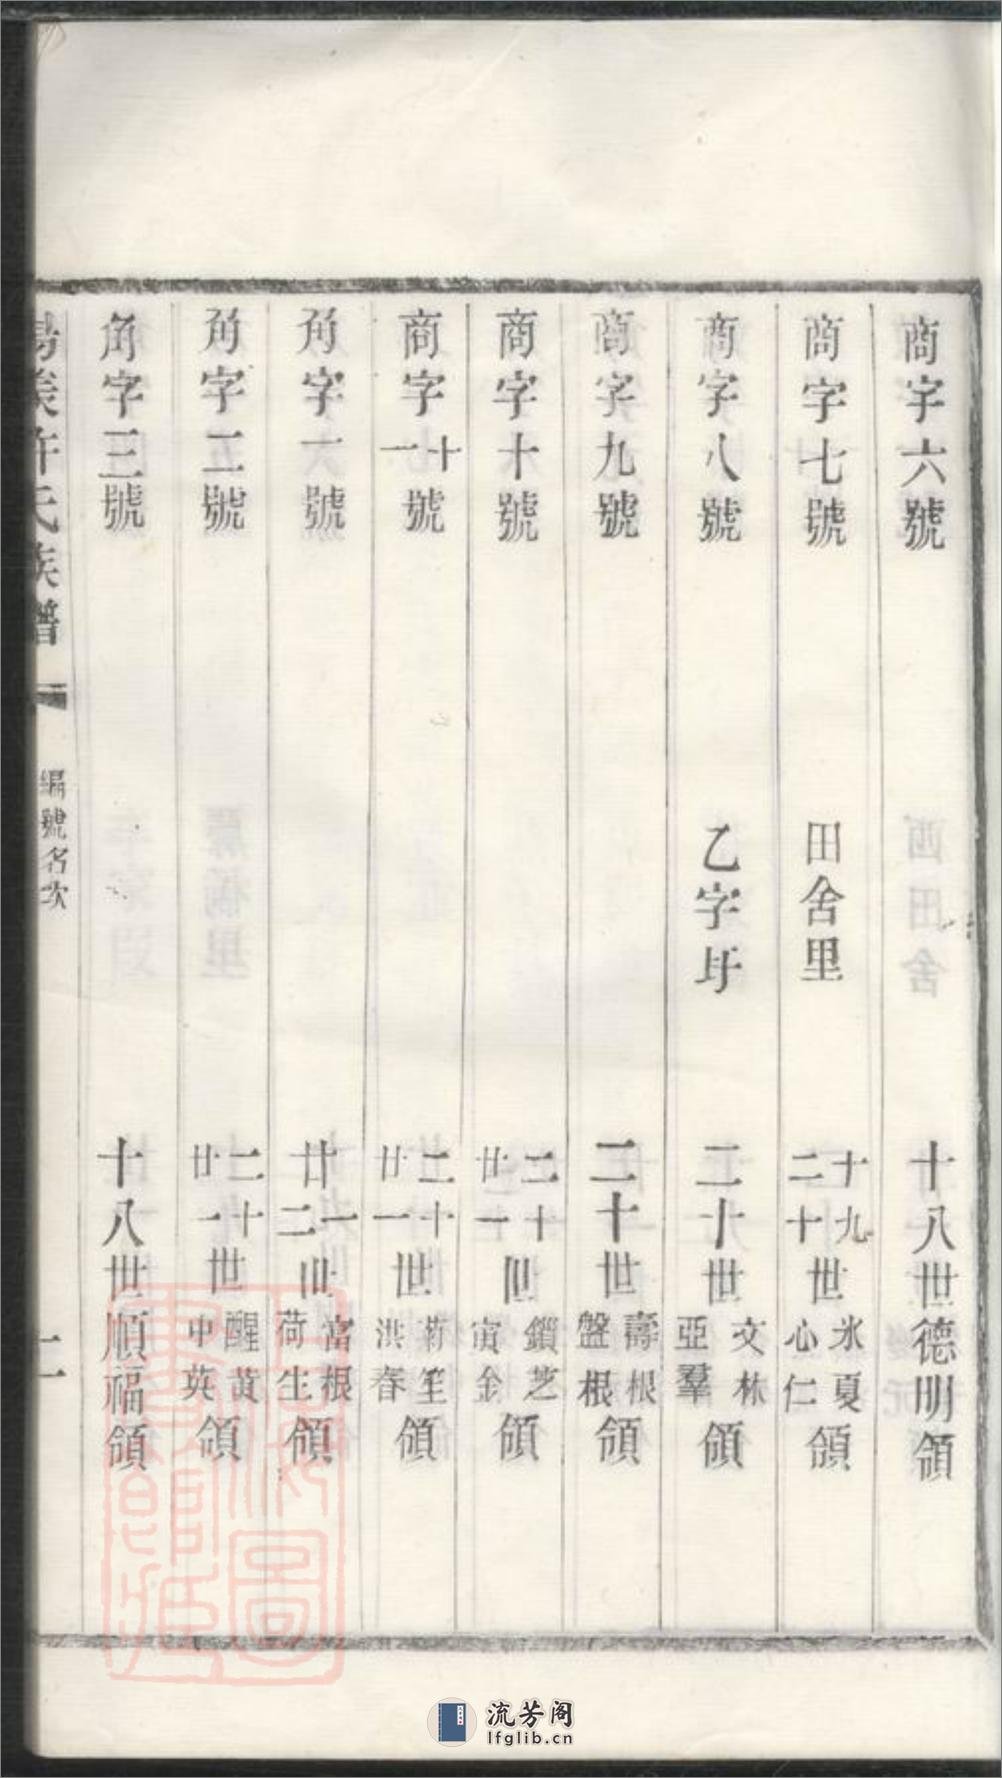 商字六號 十八世德明領
商字七號 田舍里 十九二十世氷夏心仁領
商字八號 乙字圩 二十世文林亞羣領
商字九號 二十世壽根盤根領
商字十號 二十廿一世鎖芝寅金領
商字十一號 二十廿一世荷笙洪春領
角字六號 廿一二世富根荷生領
角字五號 二十廿一世醒黃中英領
角字三號 十八世順福領
許氏族譜 編號名次
流芳阁
lfglib.cn